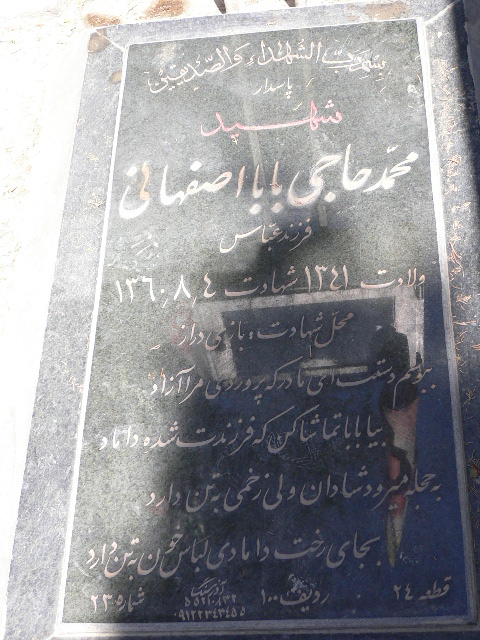 بسم رب الشهداء والصدیقین
پاسدار
شهید
محمد حاجی بابا اصفهانی
فرزند عباس
ولادت ۱۳۴۱ شهادت ۱۳۶۰،۸،۴
محل شهادت: بازی دراز
ببوسم دستت ای مادر که پروردی مرا آزاد
بیا بابا تماشا کن که فرزندت شده داماد
به حجله میرود شادان ولی زخمی به تن دارد
بجای رخت دامادی لباس خون به تن دارد
قطعه ۲۴ ردیف ۱۰۰ شماره ۲۳
۵۵۲۱۰۸۳۲
۰۹۱۲۲۳۴۳۴۵۵